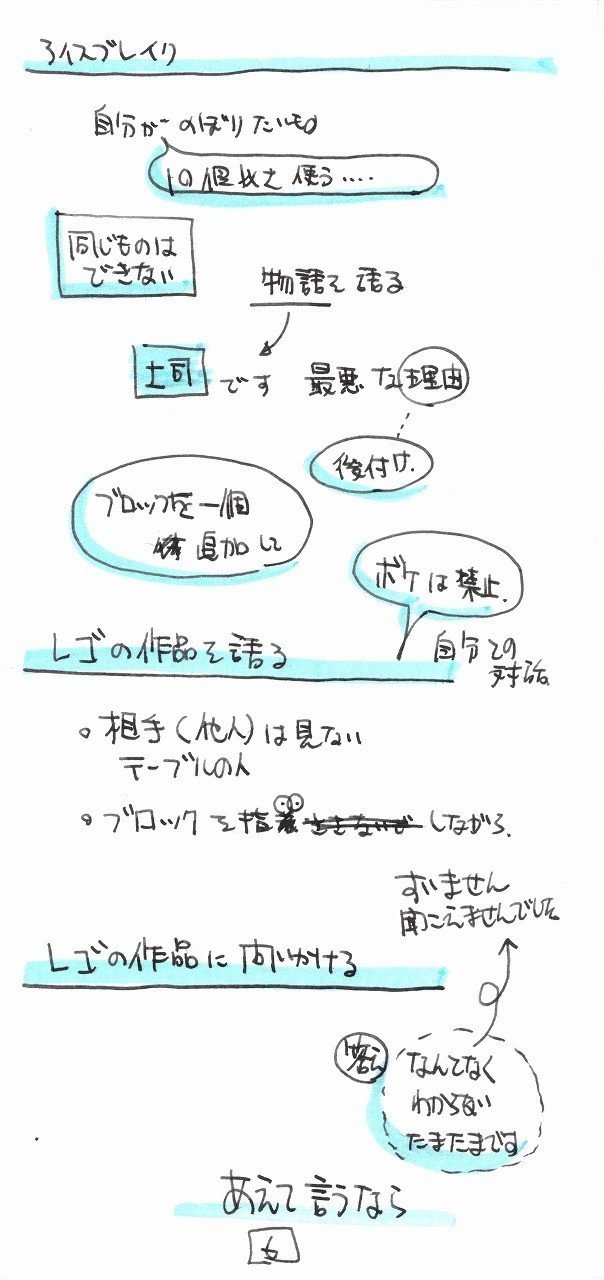 アイスブレイク
自分が のぼりたいもの
10個以上 使う....
同じものは
できない
物語を語る
上司 です 最悪な理由
後付け
ブロックを一個
追加して
ボケは禁止.
レゴの作品を語る
自分との
対話
相手(他人)は見ない
テーブルの人
ブロックを指 しながら.
すいません
聞こえませんでした
レゴの作品に問いかける
なんてなく
わからない
たまたまです
あえて言うなら
も